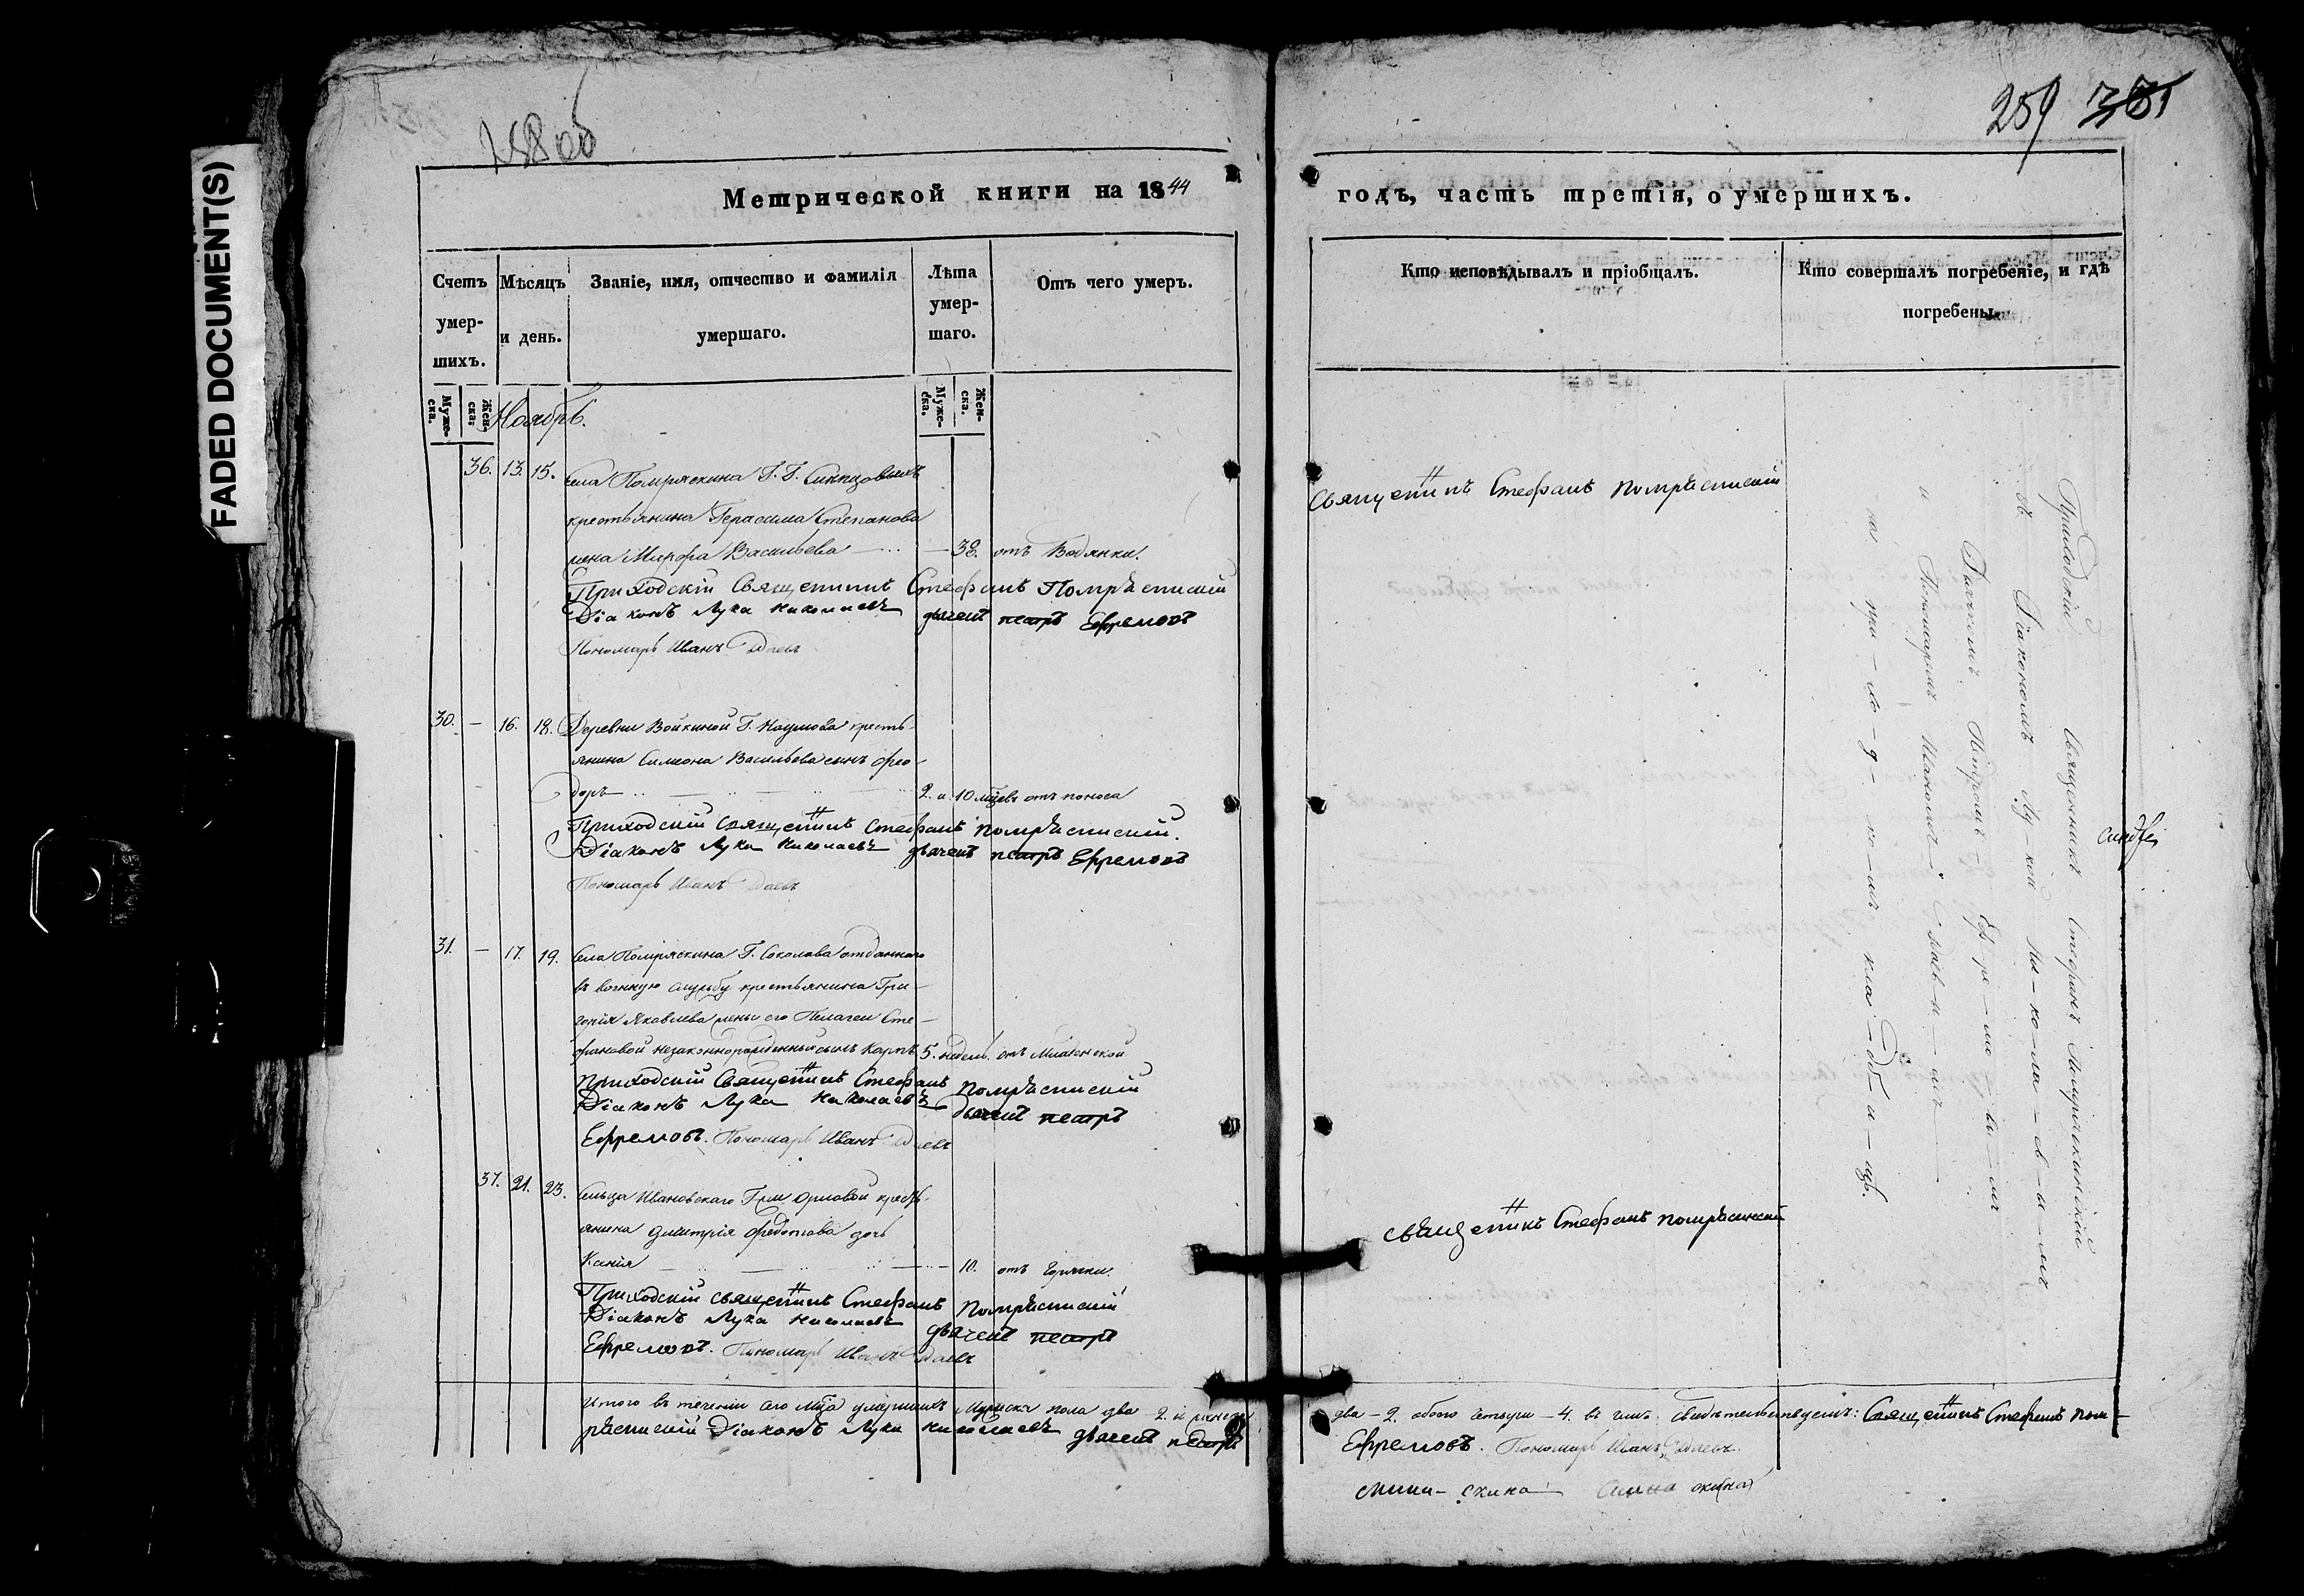 FADED DOCUMENT(S)
258 об
259 361
Метрической книги на 1844
годъ, часть третія, о умершихъ.
Счетъ умер-шихъ.
Мѣсяцъ и день.
Званіе, имя, отчество и фамилія умершаго.
Лѣта умер-шаго.
Отъ чего умеръ.
Кто исповѣдывалъ и пріобщалъ.
Кто совершалъ погребеніе, и гдѣ погребены.
Муже-ска.
Жен-ска.
Муже-ска.
Жен-ска.
Ноябрь.
36. 13. 15. Села Помряскина Г. Г.
крестьянина Герасима Степанова
жена Марфа Васильева — 38. отъ Водянки.
Приходскій Священникъ Стефанъ Помряскинскій
Діаконъ Лука Николаевъ дьячекъ петръ Ефремовъ
Пономарь Иванъ
Священникъ Стефанъ помряскинскій
30. — 16. 18. Деревни Войкиной Г. Наумова кресть-
янина Симеона Васильева сынъ Фео-
доръ — 2. и 10 мѣсцевъ отъ поноса
Приходскій священникъ Стефанъ помряскинскій.
Діаконъ Лука Николаевъ дьячекъ петръ Ефремовъ
Пономарь Иванъ
31. — 17. 19. Села Помряскина Г. Соколова отданнаго
въ военную службу крестьянина Гри-
горія Яковлева жены его Пелагеи Сте-
фановой незаконнорожденный сынъ Карпъ 5. недель. отъ Младенской
приходскій Священникъ Стефанъ помряскинскій
Діаконъ Лука Николаевъ дьячекъ петръ
Ефремовъ. Пономарь Иванъ
37. 21. 23. Сельца Ивановскаго Орловой кресть-
янина Димитрія Федотова дочь
Ксенія — 10. отъ Горячки.
Приходскій священникъ Стефанъ помряскинскій
Діаконъ Лука Николаевъ дьячекъ петръ
Ефремовъ. Пономарь Иванъ
священникъ Стефанъ помряскинскій
Приходскій Священникъ Стефанъ Помряскинскій
съ Діакономъ Лу-кой Ни-ко-ла-ев-ы-мъ
Дьячкомъ Петромъ Еф-ре-мо-вы-мъ
и Пономаремъ Иваномъ
на при-хо-д-ко-мъ кла-дб-и-щѣ.
Итого въ теченіи сего мѣца умершихъ Мужеска пола два — 2. и женска
два — 2. обоего четыре — 4. въ чемъ свидѣтельствуемъ: Священникъ Стефанъ пом-
ряскинскій Діаконъ Лука Николаевъ дьячекъ петръ
Ефремовъ. Пономарь Иванъ